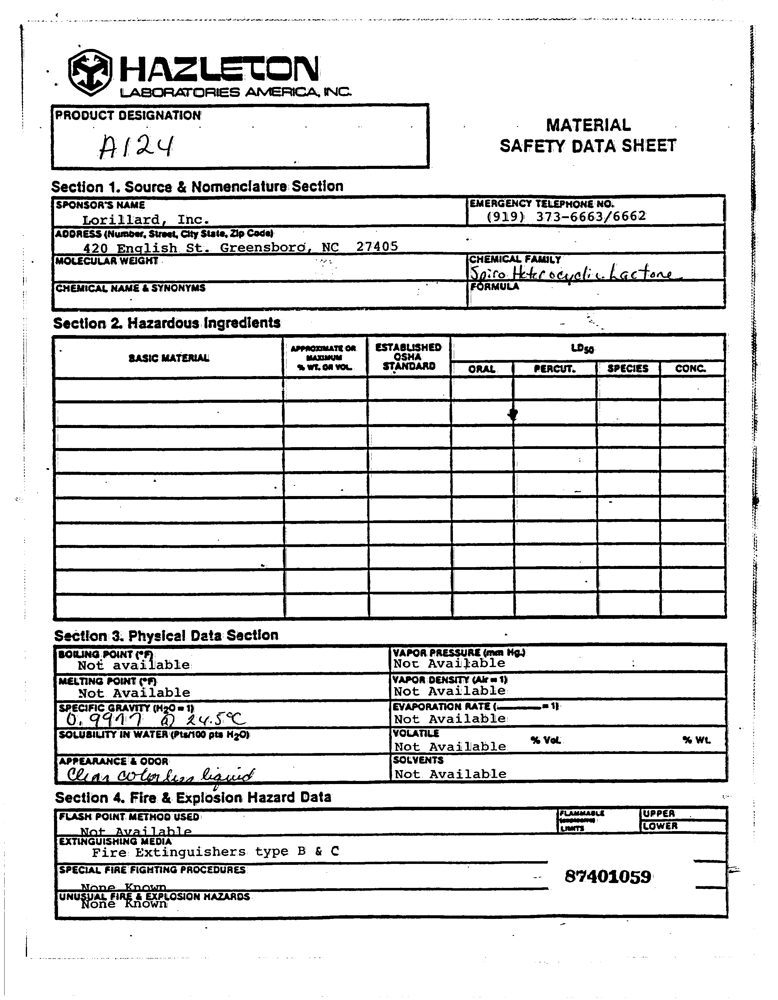 HAZLETON
LABORATORIES AMERICA, INC.
PRODUCT DESIGNATION
A124
MATERIAL
SAFETY DATA SHEET
Section 1. Source & Nomenclature Section
SPONSOR'S NAME
Lorillard, Inc.
EMERGENCY TELEPHONE NO.
(919) 373-6663/6662
ADDRESS (Number, Street, City State, Zip Code)
420 English St. Greensboro, NC 27405
MOLECULAR WEIGHT
CHEMICAL FAMILY
Spiro Heterocyclic Lactone
CHEMICAL NAME & SYNONYMS
FORMULA
Section 2. Hazardous Ingredients
BASIC MATERIAL
APPROXIMATE OR
MAXIMUM
% WT. OR VOL.
ESTABLISHED
OSHA
STANDARD
LD50
ORAL
PERCUT.
SPECIES
CONC.
Section 3. Physical Data Section
BOILING POINT (°F)
Not available
VAPOR PRESSURE (mm Hg.)
Not Available
MELTING POINT (°F)
Not Available
VAPOR DENSITY (Air = 1)
Not Available
SPECIFIC GRAVITY (H2O = 1)
0.9977 @ 24.5°C
EVAPORATION RATE (______ = 1)
Not Available
SOLUBILITY IN WATER (Pts/100 pts H2O)
VOLATILE
Not Available % Vol. % Wt.
APPEARANCE & ODOR
Clear colorless liquid
SOLVENTS
Not Available
Section 4. Fire & Explosion Hazard Data
FLASH POINT METHOD USED
Not Available
FLAMMABLE
LIMITS
UPPER
LOWER
EXTINGUISHING MEDIA
Fire Extinguishers type B & C
SPECIAL FIRE FIGHTING PROCEDURES
None Known
87401059
UNUSUAL FIRE & EXPLOSION HAZARDS
None Known